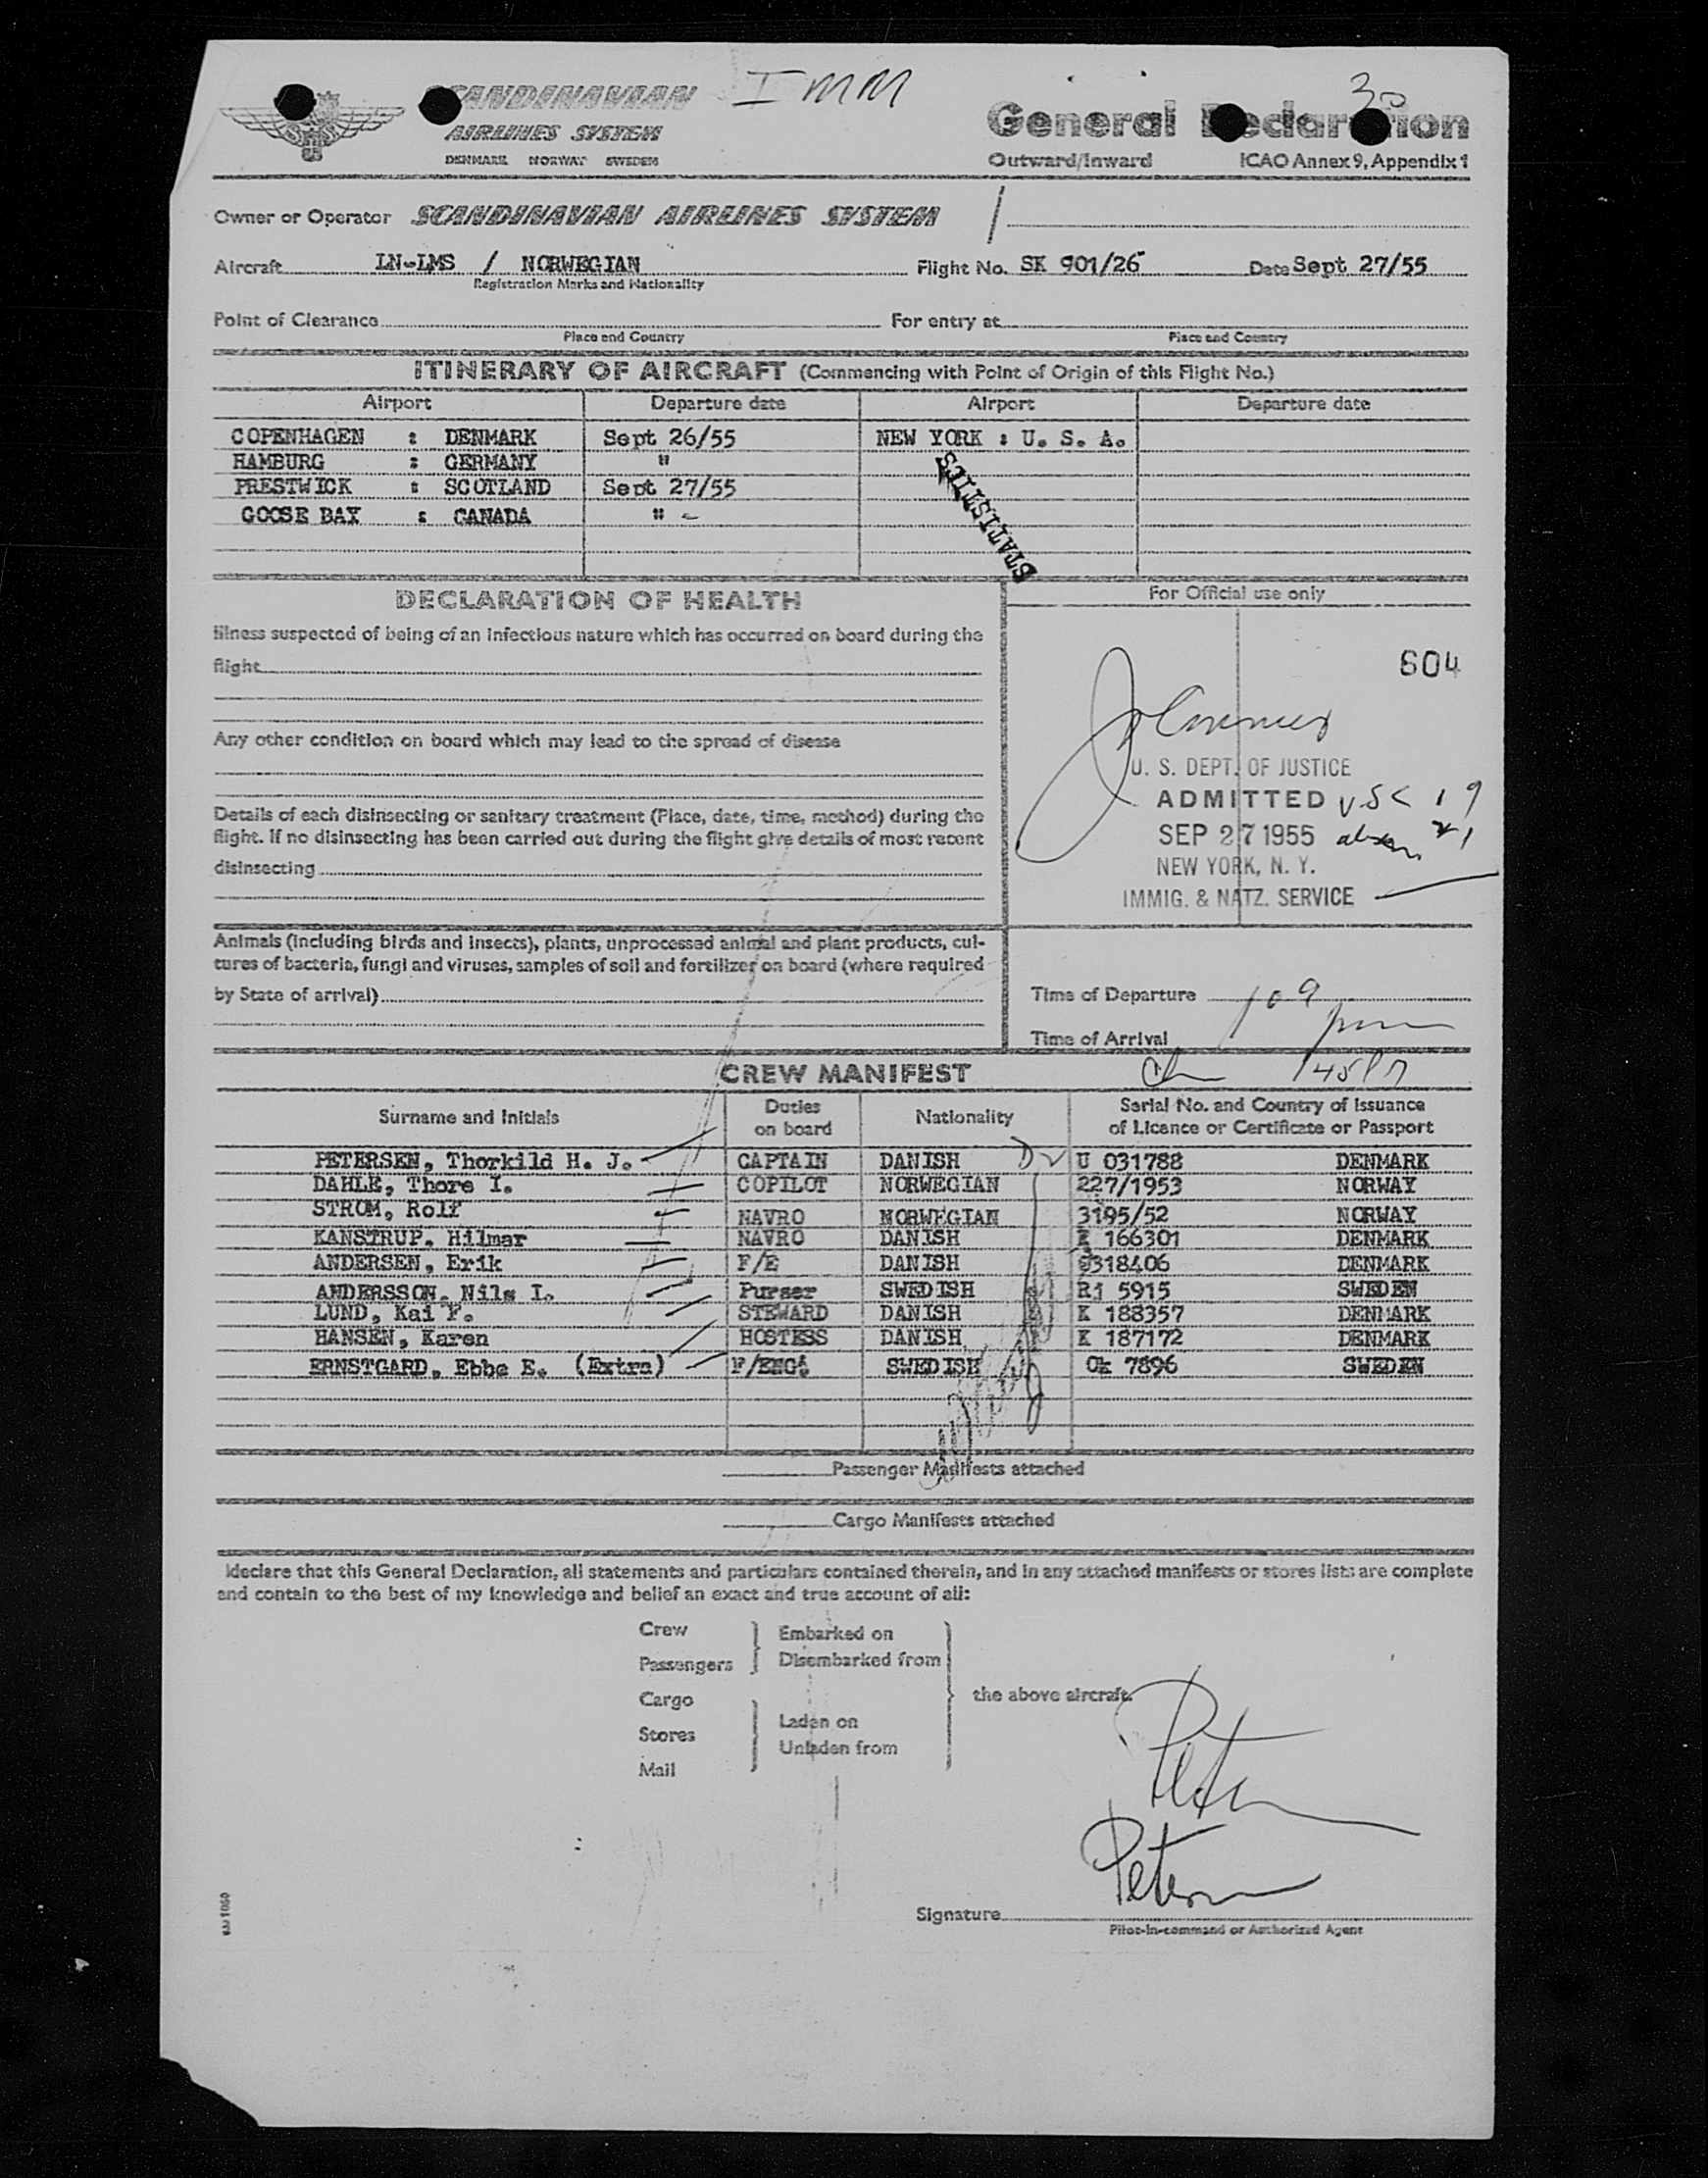 I MM
30
SCANDINAVIAN
AIRLINES SYSTEM
DENMARK NORWAY SWEDEN
General Declaration
Outward/Inward ICAO Annex 9, Appendix 1
Owner or Operator SCANDINAVIAN AIRLINES SYSTEM /
Aircraft LN-LMS / NORWEGIAN Flight No. SK 901/26 Date Sept 27/55
Registration Marks and Nationality
Point of Clearance For entry at
Place and Country Place and Country
ITINERARY OF AIRCRAFT (Commencing with Point of Origin of this Flight No.)
Airport Departure date Airport Departure date
COPENHAGEN : DENMARK Sept 26/55 NEW YORK : U. S. A.
HAMBURG : GERMANY "
PRESTWICK : SCOTLAND Sept 27/55
GOOSE BAY : CANADA " -
STATISTICS
DECLARATION OF HEALTH
Illness suspected of being of an infectious nature which has occurred on board during the
flight
Any other condition on board which may lead to the spread of disease
Details of each disinsecting or sanitary treatment (Place, date, time, method) during the
flight. If no disinsecting has been carried out during the flight give details of most recent
disinsecting
Animals (including birds and insects), plants, unprocessed animal and plant products, cul-
tures of bacteria, fungi and viruses, samples of soil and fertilizer on board (where required
by State of arrival)
For Official use only
604
U. S. DEPT. OF JUSTICE
ADMITTED
SEP 27 1955
NEW YORK, N. Y.
IMMIG. & NATZ. SERVICE
Time of Departure 109
Time of Arrival
CREW MANIFEST
Surname and Initials Duties on board Nationality Serial No. and Country of Issuance of Licence or Certificate or Passport
PETERSEN, Thorkild H. J. CAPTAIN DANISH U 031788 DENMARK
DAHLE, Thore I. COPILOT NORWEGIAN 227/1953 NORWAY
STROM, Rolf NAVRO NORWEGIAN 3195/52 NORWAY
KANSTRUP, Hilmar NAVRO DANISH K 166301 DENMARK
ANDERSEN, Erik F/E DANISH 318406 DENMARK
ANDERSSON, Nils I. Purser SWEDISH Rj 5915 SWEDEN
LUND, Kai F. STEWARD DANISH K 188357 DENMARK
HANSEN, Karen HOSTESS DANISH K 187172 DENMARK
ERNSTGARD, Ebbe E. (Extra) F/ENG. SWEDISH Ok 7896 SWEDEN
Passenger Manifests attached
Cargo Manifests attached
I declare that this General Declaration, all statements and particulars contained therein, and in any attached manifests or stores lists are complete
and contain to the best of my knowledge and belief an exact and true account of all:
Crew
Passengers
Cargo
Stores
Mail
Embarked on
Disembarked from
Laden on
Unladen from
the above aircraft.
Signature
Pilot-in-command or Authorized Agent